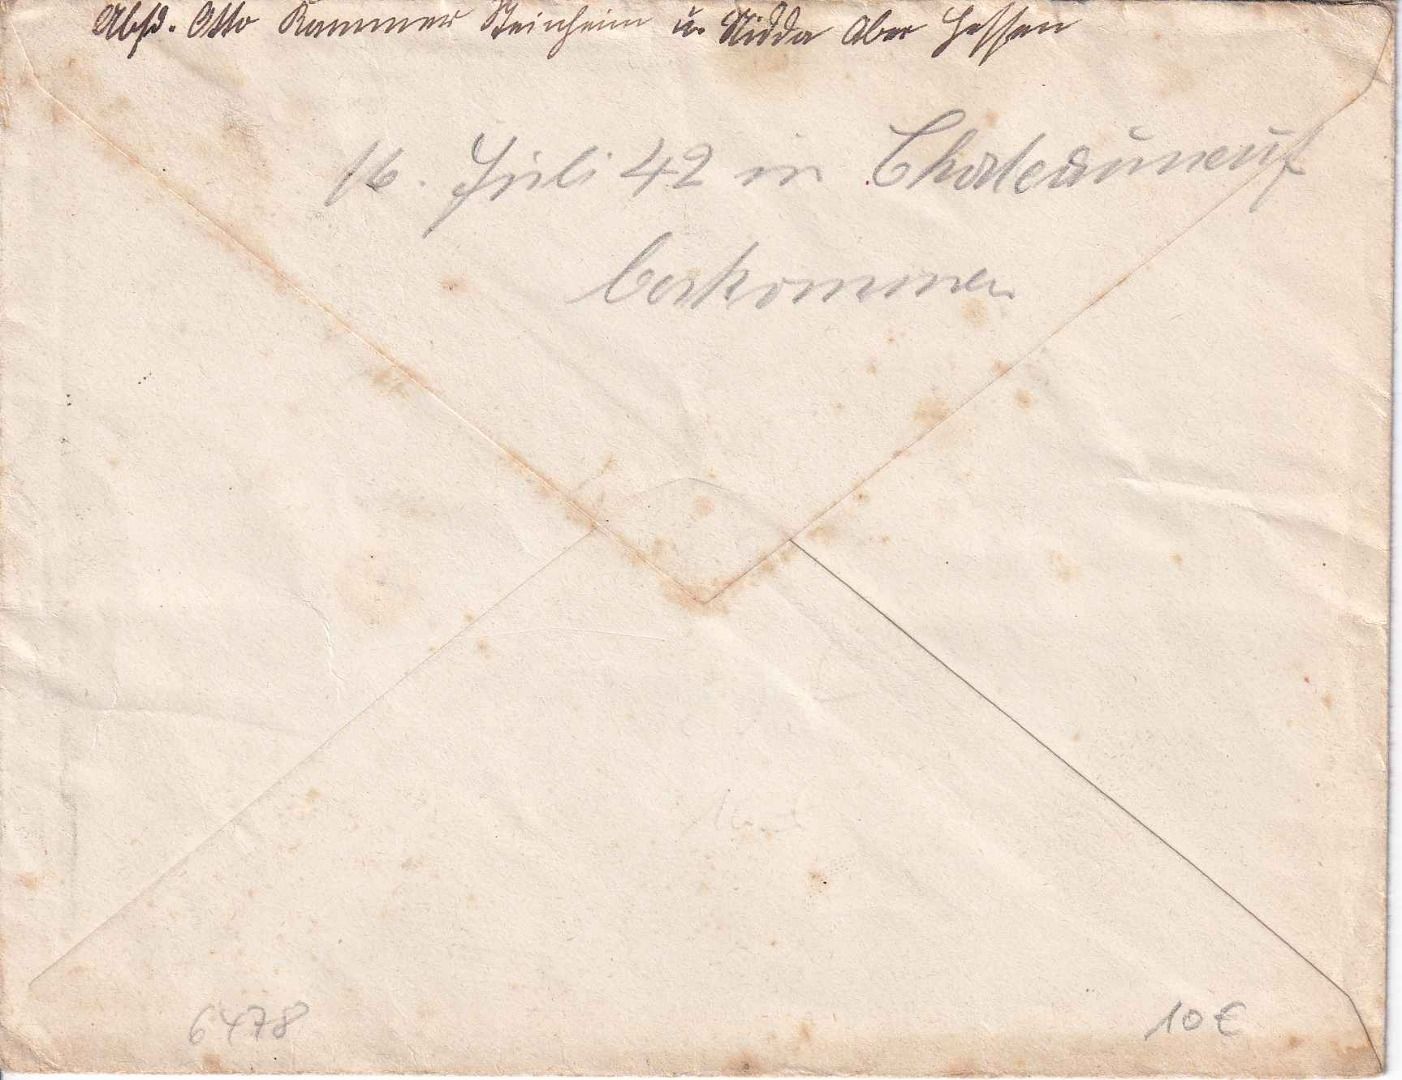 Absd. Otto Kammer Steinheim ü. Nidda Ober Hessen
16. Juli 42 in Chateauneuf
bekommen
6478
10€